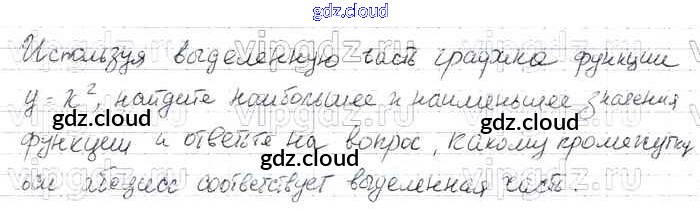 gdz.cloud
Используя выделенную часть графика функции
y = x², найдите наибольшее и наименьшее значения
gdz.cloud gdz.cloud
функции и ответьте на вопрос, какому промежутку
gdz.cloud
оси абсцисс соответствует выделенная часть.